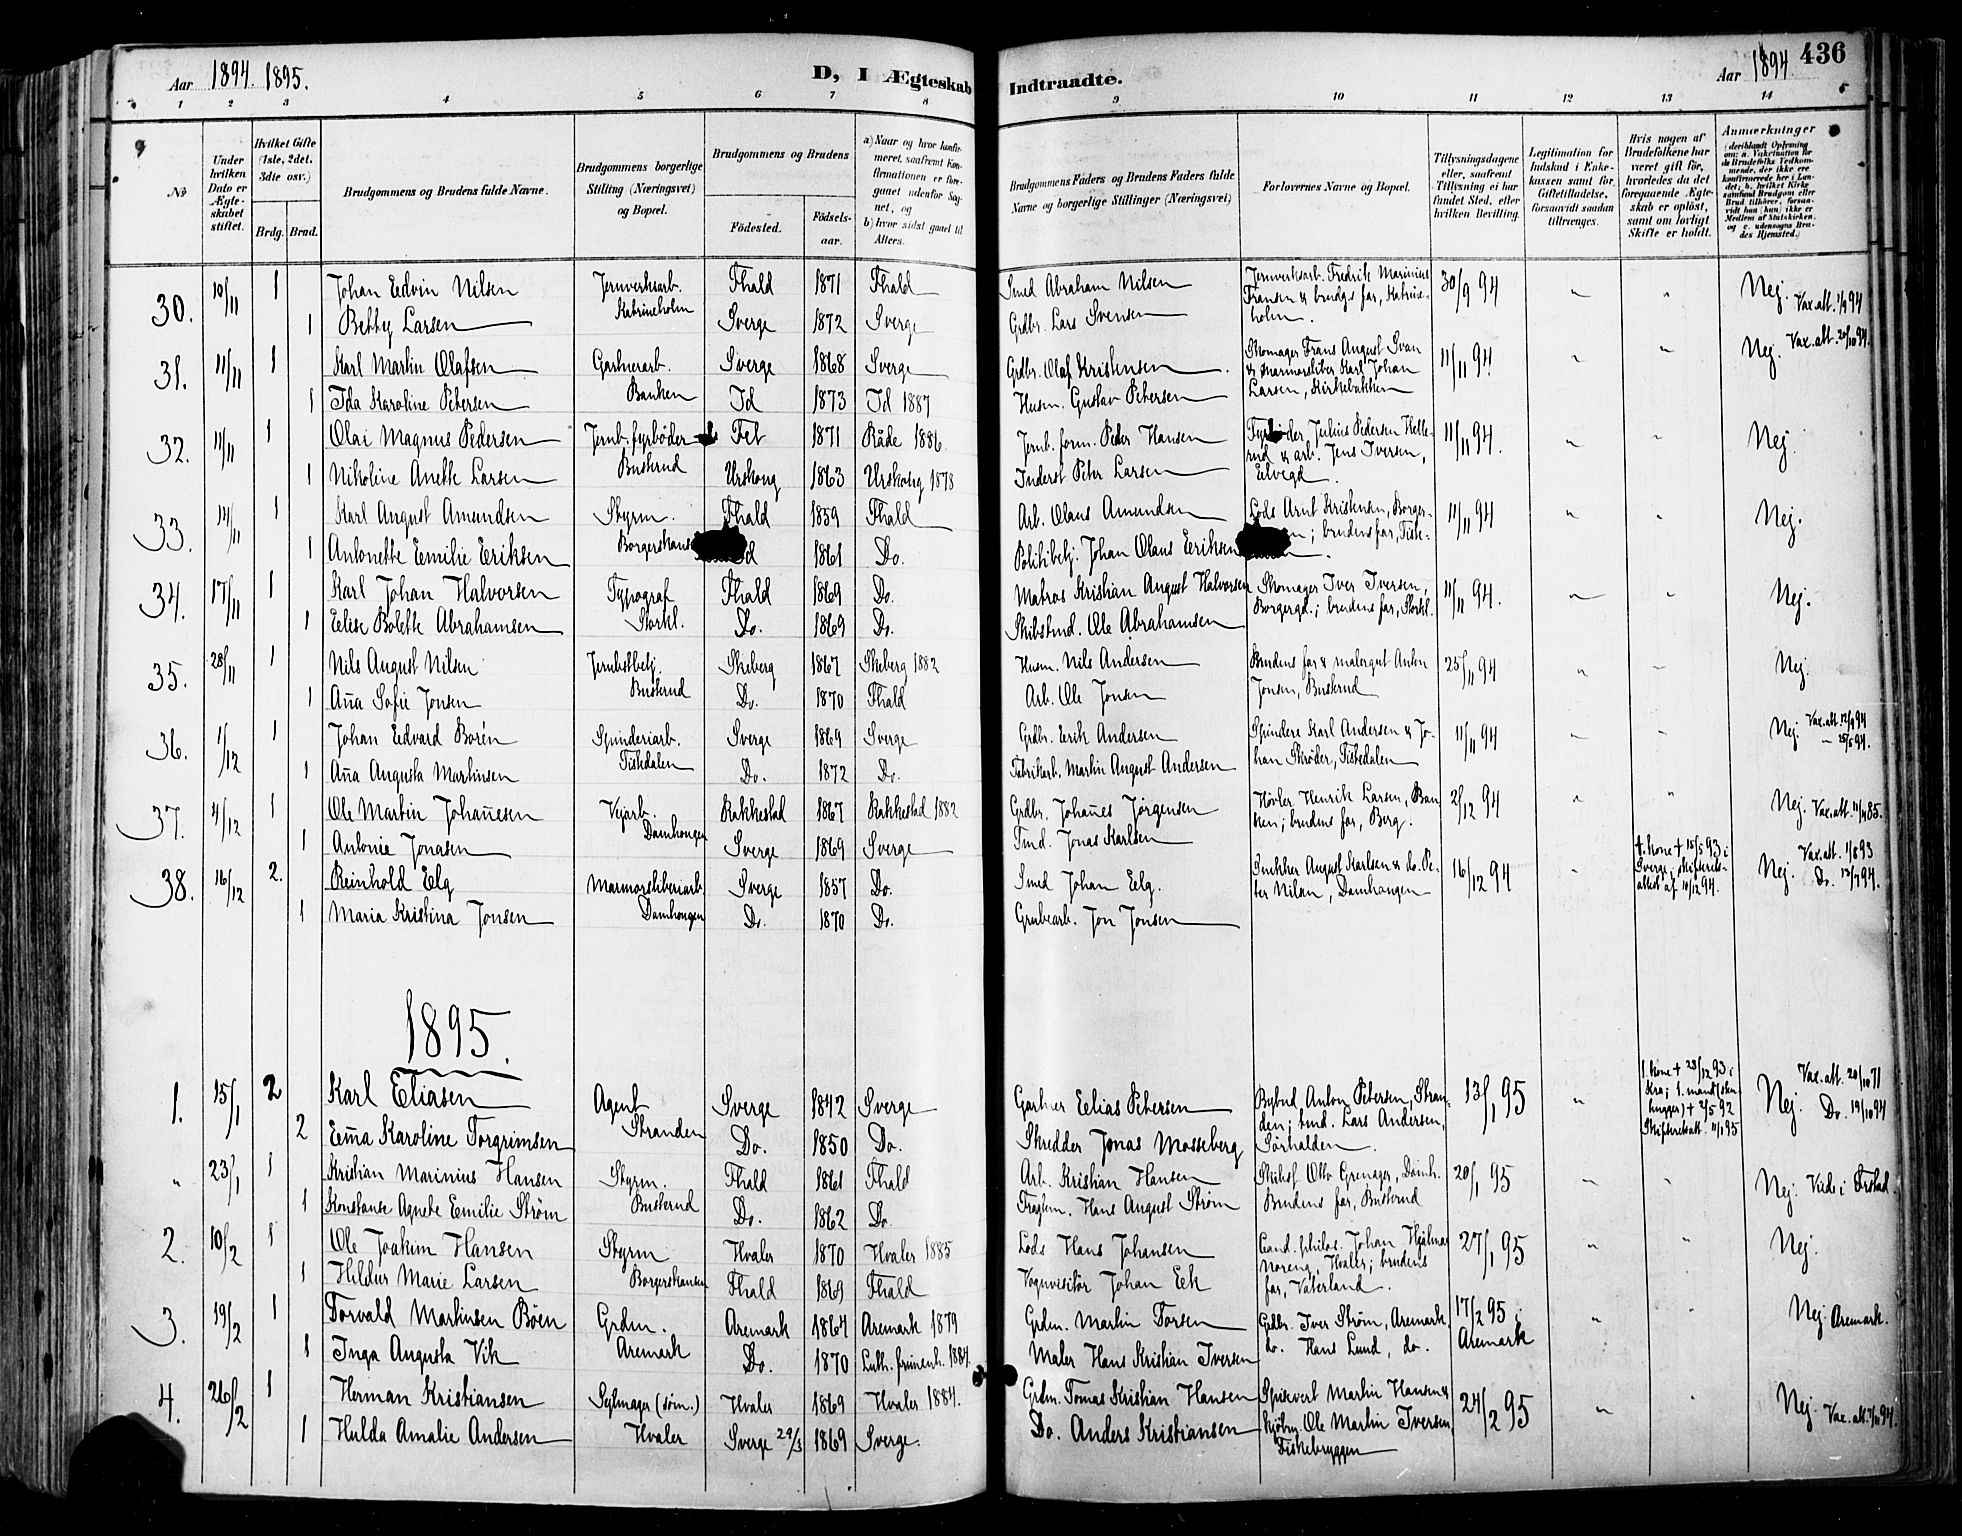 Aar 1894. 1895. D, I Ægteskab Indtraadte. Aar 1894. 436
1 2 3 4 5 6 7 8 9 10 11 12 13 14
No
Under hvilken Dato er Ægteskabet stiftet.
Hvilket Gifte (1ste, 2det, 3die osv.)
Brdg. Brud.
Brudgommens og Brudens fulde Navne.
Brudgommens borgerlige Stilling (Næringsvei) og Bopæl.
Brudgommens og Brudens
Fødested. Fødselsaar.
a) Naar og hvor konfirmeret, saafremt Konfirmationen er foregaaet udenfor Sognet, og
b) hvor sidst gaaet til Alters.
Brudgommens Faders og Brudens Faders fulde Navne og borgerlige Stillinger (Næringsvei)
Forlovernes Navne og Bopæl.
Tillysningsdagene eller, saafremt Tillysning ei har fundet Sted, efter hvilken Bevilling.
Legitimation for Indskud i Enkekassen samt for Giftetilladelse, forsaavidt saadan tiltrænges.
Hvis nogen af Brudefolkene har været gift før, hvorledes da det foregaaende Ægteskab er opløst, samt om lovligt Skifte er holdt.
Anmærkninger
30. 10/11 1 Johan Edvin Nilsen Jernverksarb. Fhald 1871 Fhald Smed Abraham Nilsen Jernverksarb. Fredrik Marinius 30/9 94 " " Nej. Vax.att. 1/9 94
Katrineholm Fransen & brudgs far, Katrineholm.
1 Betty Larsen Sverge 1872 Sverge Grdbr. Lars Svensen
31. 11/11 1 Karl Martin Olafsen Gartnerarb. Sverge 1868 Sverge Grdbr. Olaf Kristensen Skomager Frans August Svan 11/11 94 " " Nej. Vax.att. 20/10 94.
Banken & marmorsliber Karl Johan
1 Ida Karoline Petersen Id 1873 Id 1887 Husm. Gustav Petersen Larsen, Kirkebakken
32. 11/11 1 Olai Magnus Pedersen Jernb. fyrbøder Fet 1871 Råde 1886. Jernb. form. Peder Hansen Fyrbøder Julius Pedersen Hellerud & arb. Jens Iversen, 11/11 94. " " Nej.
1 Nikoline Anette Larsen Buskrud Urskoug 1863 Urskoug 1878 Inderst Peter Larsen Elvegd.
33. 14/11 1 Karl August Amundsen Styrm. Fhald 1859 Fhald Arb. Olaus Amundsen Lods Arnt Kristensen, Borger- 11/11 94 " " Nej.
Borgerskans n; brudens far, Fiske-
1 Antonette Emilie Eriksen d 1861 Do. Politibetj. Johan Olaus Eriksen
34. 17/11 1 Karl Johan Halvorsen Typograf Fhald 1869 Do. Matros Kristian August Halvorsen Skomager Iver Iversen, 11/11 94. " " Nej.
1 Elise Bolette Abrahamsen Storkl. Do. 1869 Do. Skibstmd. Ole Abrahamsen Borgergd.; brudens far, Storkl.
35. 28/11 1 Nils August Nilsen Jernbstbetj. Skeberg 1867 Skeberg 1882 Husm. Nils Andersen Brudens far & malergut Anton 25/11 94 " " Nej.
1 Aña Sofie Jonsen Buskrud Do. 1870 Fhald Arb. Ole Jonsen Jonsen, Buskrud
36. 1/12 1 Johan Edvard Borén Spinderiarb. Sverge 1869 Sverge Grdbr. Erik Andersen Spindere Karl Andersen & Jo- 11/11 94 " " Nej. Vax.att. 12/9 94
1 Aña Augusta Martinsen Tistedalen Do. 1872 Do. Fabrikarb. Martin August Andersen han Skrøder, Tistedalen — 25/5 94.
37. 4/12 1 Ole Martin Johañesen Vejarb. Rakkestad 1867 Rakkestad 1882 Grdbr. Johañes Jørgensen Høvler Henrik Larsen, Ban- 2/12 94 " " Nej. Vax.att. 11/11 85.
1 Antonie Jonasen Damhougen Sverge 1869 Sverge Tmd. Jonas Karlsen ken; brudens far, Berg.
38. 16/12 2. Reinhold Elg Marmorsliberiarb. Sverge 1857 Do. Smed Johan Elg. Snekker August Karlsen & do. Pe- 16/12 94 " 1. kone † 15/5 93 i Sverge; skifteretsattest af 11/12 94. Nej. Vax.att. 1/8 93
Damhougen ter Nilsen, Damhougen Do. 13/7 94.
1 Maria Kristina Jonsen Do. 1870 Do. Grubearb. Jon Jonsen
1895.
1. 15/1 2 Karl Eliasen Agent Sverge 1842 Sverge Gartner Elias Petersen Bybud Anton Petersen, Stran- 13/1 95 " 1. kone † 28/12 93 i Kra; 1. mand (stenhugger) † 2/5 92 Skifteretsatt. 11/1 95 Nej. Vax.att. 20/10 71
2 Em̃a Karoline Torgrimsen Stranden Do. 1850 Do. Skredder Jonas Mosseberg den; tmd. Lars Andersen, Sørhalden. Do. 19/10 94
" 23/1 1 Kristian Marinius Hansen Styrm. Fhald 1861 Fhald Arb. Kristian Hansen Skibsf. Otto Grenager, Damh. 20/1 95 " " Nej. Viede i Frstad.
1 Konstanse Agnete Emilie Strøm Buskrud Do. 1862 Do. Fragtem. Hans August Strøm Brudens far, Buskrud
2. 10/2 1 Ole Joakim Hansen Styrm Hvaler 1870 Hvaler 1885 Lods Hans Johansen Cand. philos. Johan Hjalmar 27/1 95 " " Nej.
1 Hildur Marie Larsen Borgerskansen Fhald 1869 Fhald Vognvisitør Johan Eek Noreng, Hvaler; brudens far, Vaterland.
3. 19/2 1 Torvald Martinsen Bøen Grdm. Aremark 1864 Aremark 1879 Grdm. Martin Torsen Grdbr. Iver Strøm, Aremark, 17/2 95 i Aremark " " Nej. Aremark.
1 Inga Augusta Vik Aremark Do. 1870 Luth. frimenh. 1884. Maler Hans Kristian Iversen do. Hans Lund, do.
4. 26/2 1 Herman Kristiansen Sejlmager (søm.) Hvaler 1869 Hvaler 1884. Grdm. Tomas Kristian Hansen Spisevert Martin Hansen & 24/2 95 " " Nej. Vax.att. 7/11 94.
1 Hulda Amalie Andersen Hvaler Sverge 29/3 1869 Sverge. Do. Anders Kristiansen Kjøbm. Ole Martin Iversen, Fiskebryggen